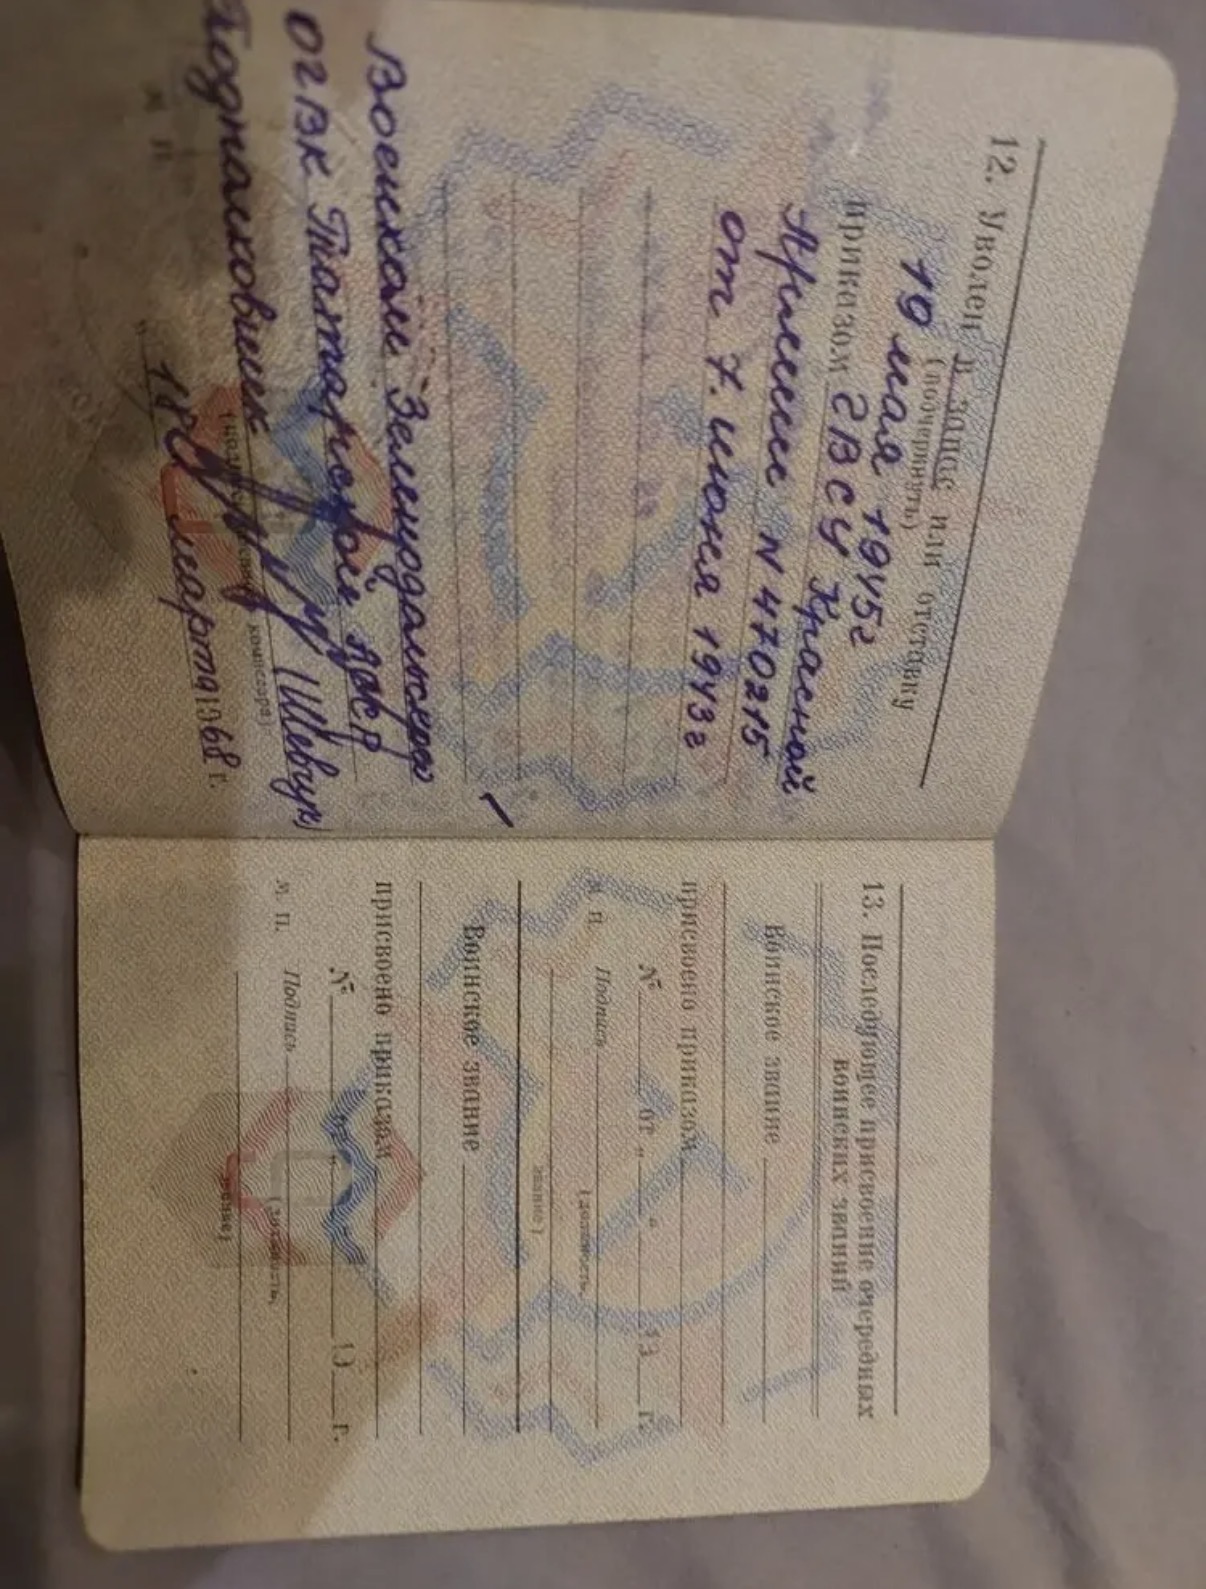 12. Уволен в запас или отставку
(подчеркнуть)
19 мая 1945г
приказом ГВСУ Красной
Армии N 470215
от 7. июня 1943г
Военком
ОГВК Татарской АССР
Подполковник (Шевчук)
м. п.
18 марта 1968 г.
13. Последующее присвоение очередных
воинских званий
Воинское звание
присвоено приказом
№ от „ “ 19 г.
м. п. Подпись
(должность,
звание)
Воинское звание
присвоено приказом
№ от „ 19 г.
м. п. Подпись
(должность,
звание)